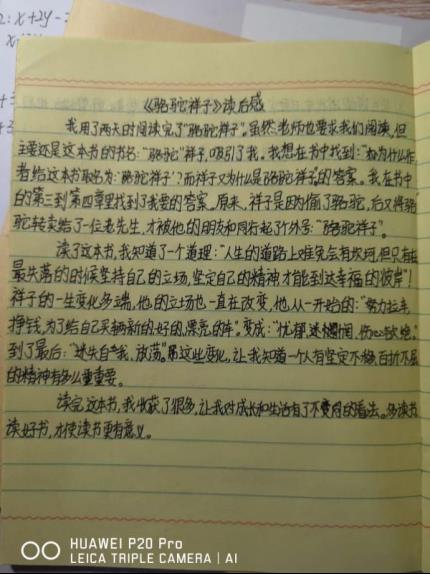 2: x+2y-
《骆驼祥子》读后感
我用了两天的阅读完了"骆驼祥子"。虽然老师也要求我们阅读,但
主要还是这本书的书名:"骆驼"祥子,吸引了我。我想在书中找到:"为什么作
者给这本书取名为:'骆驼祥子'?而祥子又为什么是骆驼祥子的答案。我在书中
的第三到第四章里找到了我要的答案。原来,祥子是因为偷了骆驼,后又将骆
驼转卖给了一位老先生,才被他的朋友和同行起了个外号:"骆驼祥子"。
读了这本书,我知道了一个道理:"人生的道路上难免会有坎坷,但只有在
最失落的时候坚持自己的立场,坚定自己的精神才能到达幸福的彼岸"!
祥子的一生变化多端,他的立场也一直在改变,他从一开始的:"努力拉车
挣钱,为了给自己买辆新的好的漂亮的车"。变成:"忧郁,迷惘,伤心
到了最后:"迷失自我,放荡。这些变化,让我知道一个人有坚定不移,百折不屈
的精神有多么重要。
读完这本书,我收获了很多,让我对成长和生活有了不同的看法。多读书
读好书,才使读书更有意义。
HUAWEI P20 Pro
LEICA TRIPLE CAMERA | AI